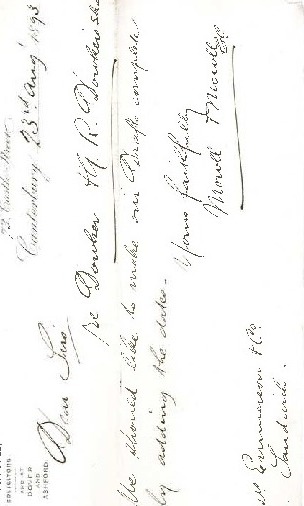 SOLICITORS
AND AT
DOVER
AND
ASHFORD.
Castle
Canterbury 23rd Aug 1893
Dear Sirs
re Dowker & R. Dowker's
We should like to make our Drafts complete
by adding the dates.
Yours faithfully
Mowll & Mowll
Emmerson & Co
Sandwich.